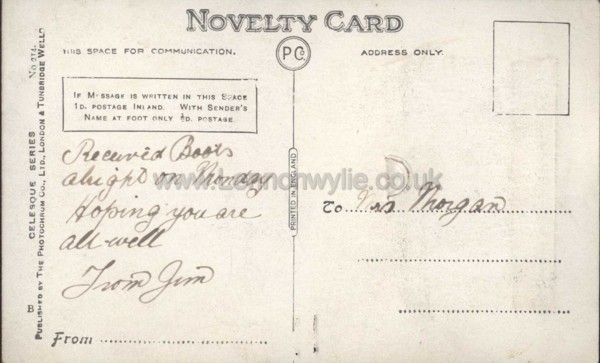 NOVELTY CARD
THIS SPACE FOR COMMUNICATION.
PCo
ADDRESS ONLY.
IF MESSAGE IS WRITTEN IN THIS SPACE
1D. POSTAGE INLAND. WITH SENDER'S
NAME AT FOOT ONLY ½D. POSTAGE.
Received Boots
alright on Monday
Hoping you are
all well
From Jim
From
B
CELESQUE SERIES
PUBLISHED BY THE PHOTOCHROM CO., LTD., LONDON & TUNBRIDGE WELLS
PRINTED IN ENGLAND
To Morgan